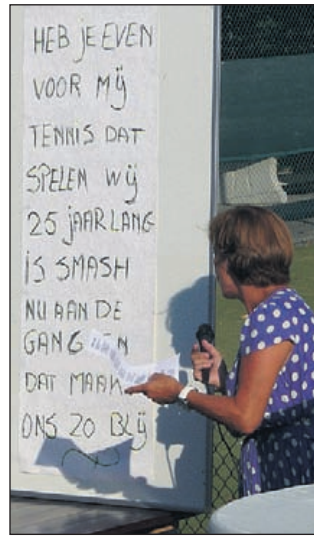 HEB JE EVEN
VOOR MIJ
TENNIS DAT
SPELEN WIJ
25 JAAR LANG
IS SMASH
NU AAN DE
GANG EN
DAT MAAK
ONS ZO BLIJ